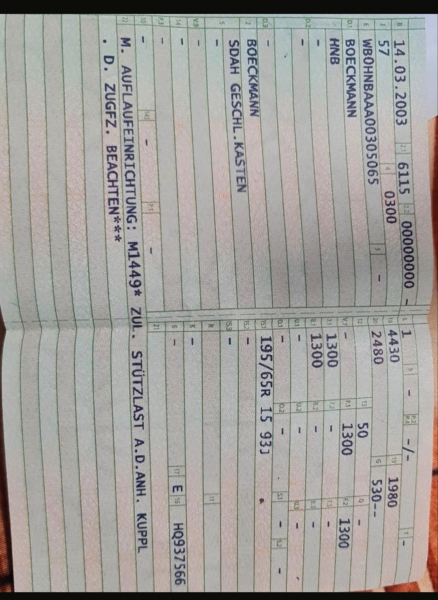 14.03.2003 6115 00000000 -
57 0300 -
WB0HNBAAA00305065
BOECKMANN
HNB
-
-
BOECKMANN
SDAH GESCHL.KASTEN
-
-
-
- - -
1 - -/- -
4430 1980
2480 530--
- 50 -
- 1300 1300
1300 - -
1300 - -
- - -
- - - -
195/65R 15 93J
-
-
-
- E HQ937566
M. AUFLAUFEINRICHTUNG: M1449* ZUL. STÜTZLAST A.D.ANH. KUPPL
. D. ZUGFZ. BEACHTEN***